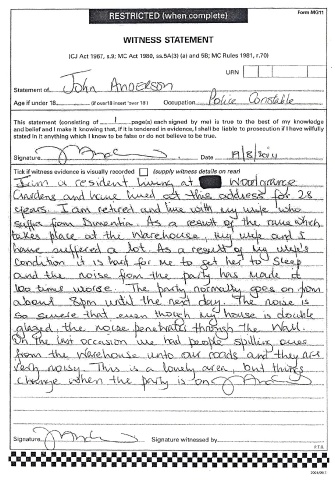 Form MG11
RESTRICTED (when complete)
WITNESS STATEMENT
(CJ Act 1967, s.9; MC Act 1980, ss.5A(3) (a) and 5B; MC Rules 1981, r.70)
URN
Statement of.. John Anderson
Age if under 18 (if over18 insert 'over 18') Occupation.. Police Constable
This statement (consisting of 1 page(s) each signed by me) is true to the best of my knowledge
and belief and I make it knowing that, if it is tendered in evidence, I shall be liable to prosecution if I have wilfully
stated in it anything which I know to be false or do not believe to be true.
Signature.. Date 19/8/2011
Tick if witness evidence is visually recorded (supply witness details on read
I am a resident living at Woodgrange
Gardens and have lived at this address for 28
years. I am retired and live with my wife who
suffer from Dimentia. As a result of the rave which
takes place at the warehouse, my wife and I
have suffered a lot. As a result of my wife's
condition it is hard for me to get her to sleep
and the noise from the party has made it
100 times worse. The party normally goes on from
about 8pm until the next day. The noise is
so severe that even though my house is double
glazed, the noise penetrate through the wall.
On the last occasion we had people spilling over
from the warehouse unto our roads and they are
very noisy. This is a lonely area, but things
change when the party is on
Signature.. Signature witnessed by..
P.T.O.
2004/05.1